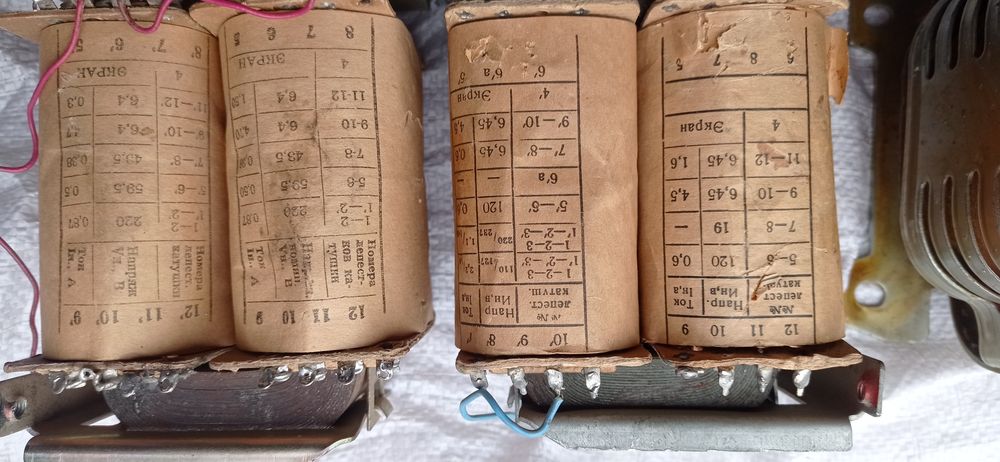 12 11 10 9
№№ Напр. Ток
лепест Ин,в Iв,а
катуш.
5–6 120 0,6
7–8 19 —
9–10 6,45 4,5
11–12 6,45 1,6
4 Экран
8 7 5
10' 9' 8'
№ № Напр Ток
лепест. Ин,в Iн,а
катуш.
1—2—3 110/127
1'—2'—3'
1—2—3 220/237
1'—2'—3'
5'—6' 120
6'а — —
7'—8' 6,45
9'—10' 6,45 4,5
4' Экран
6' 6'а 5'
12 11 10 9
Номера Ток
лепест-
ков ка-
тушки
1—2 220 0.87
1'—2'
5-6 59.5 0.50
7-8 49.5 0.38
9-10 6,4 4,70
11-12 6,4 1,50
4 ЭКРАН
8 7 6 5
12' 11' 10' 9'
Номера Напряж Ток
лепест. Vн, В Iн., А
катушки
1—2 220 0,87
1'—2'
5'—6' 59.5 0.5
7'—8' 49.5 0.38
9'—10' 6,4 4,7
11'—12' 6,4 0,3
4 ЭКРАН
8' 7' 6' 5